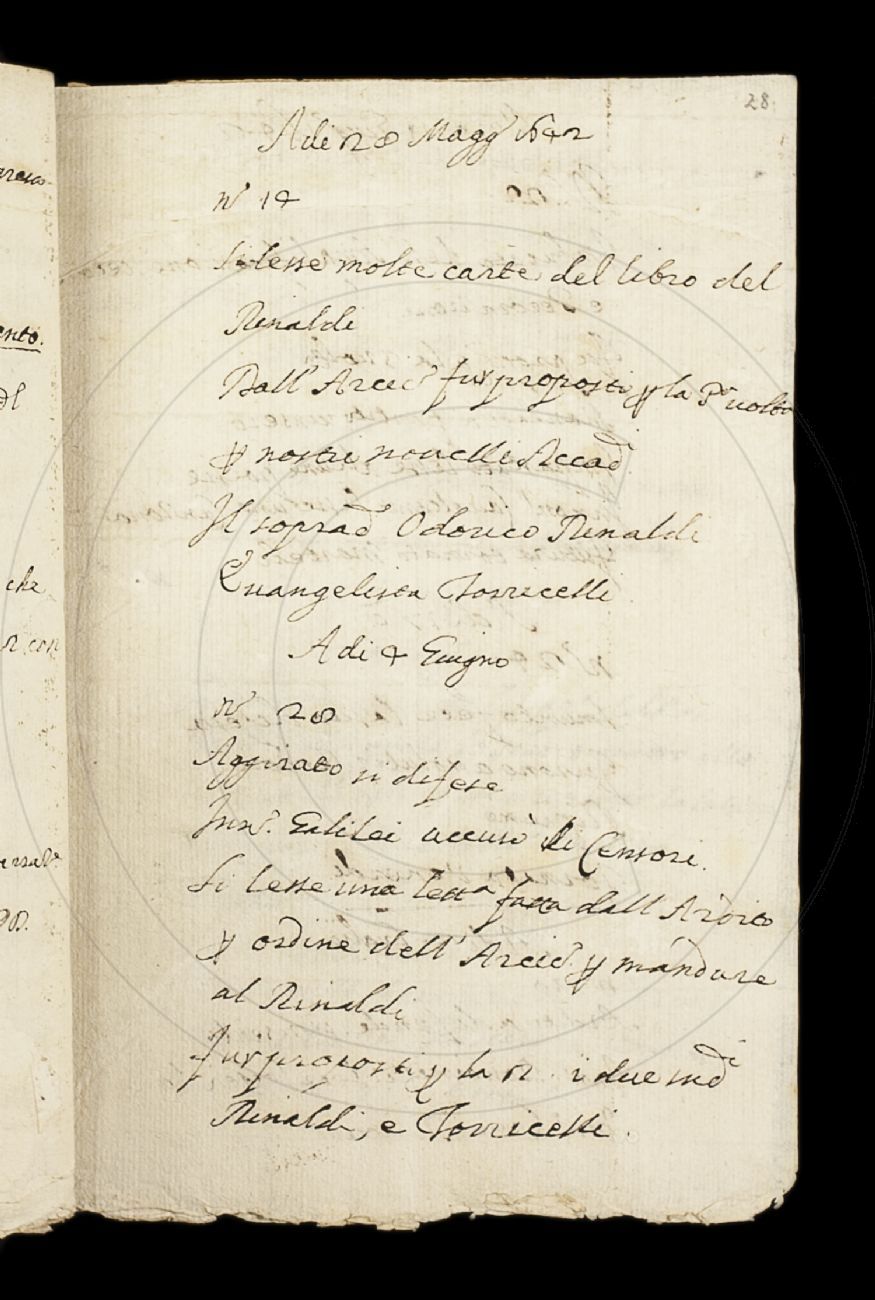 28
Adi 28 Magg.º 1642
nº 14
Si lesse molte carte del libro del
Rinaldi
Dall' Arcicº fur proposti p la Pª uolta
p nostri nouelli Accadⁱ
Il sopradº Odorico Rinaldi
Euangelista Torricelli
Adi 4 Giugno
nº 28
Aggirato si difese
Innº. Galilei accusò li Censori.
Si lesse una lettª fatta dall Arsoito
p ordine dell' Arcicº p mandare
al Rinaldi
Fur proposti p la 2 i due sudⁱ
Rinaldi, e Torricelli.
ento.
che
2 con